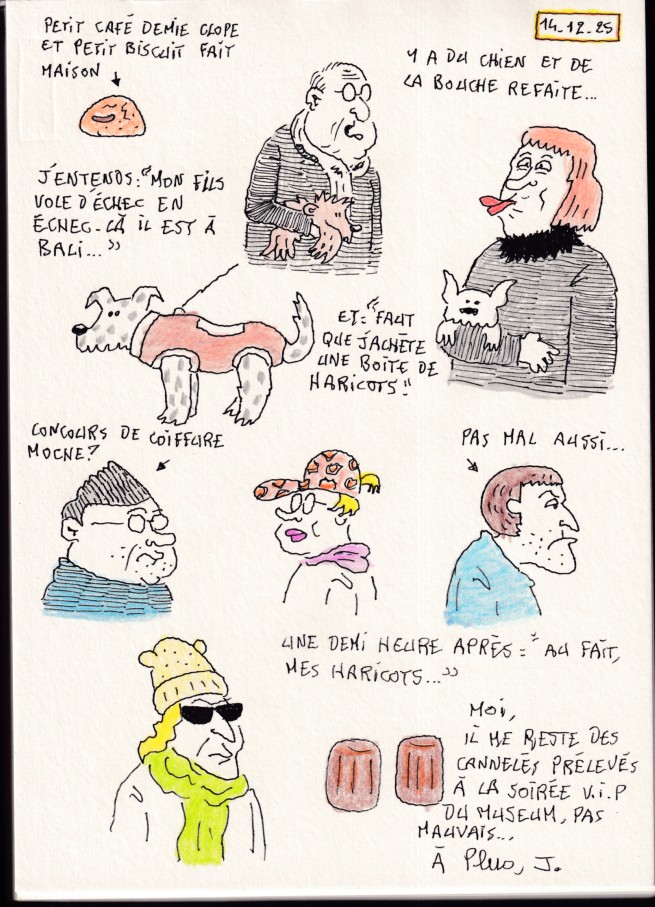 14-12-25
PETIT CAFÉ DEMIE CLOPE
ET PETIT BISCUIT FAIT
MAISON
Y A DU CHIEN ET DE
LA BOUCHE REFAITE...
J'ENTENDS: "MON FILS
VOLE D'ÉCHEC EN
ÉCHEC. LÀ IL EST À
BALI..."
ET: "FAUT
QUE J'ACHÈTE
UNE BOITE DE
HARICOTS"
CONCOURS DE COIFFURE
MOCHE?
PAS MAL AUSSI...
UNE DEMI HEURE APRÈS: "AU FAIT,
MES HARICOTS..."
MOI,
IL ME RESTE DES
CANNELÉS PRÉLEVÉS
À LA SOIRÉE V.I.P
DU MUSEUM, PAS
MAUVAIS...
À Plus, J.